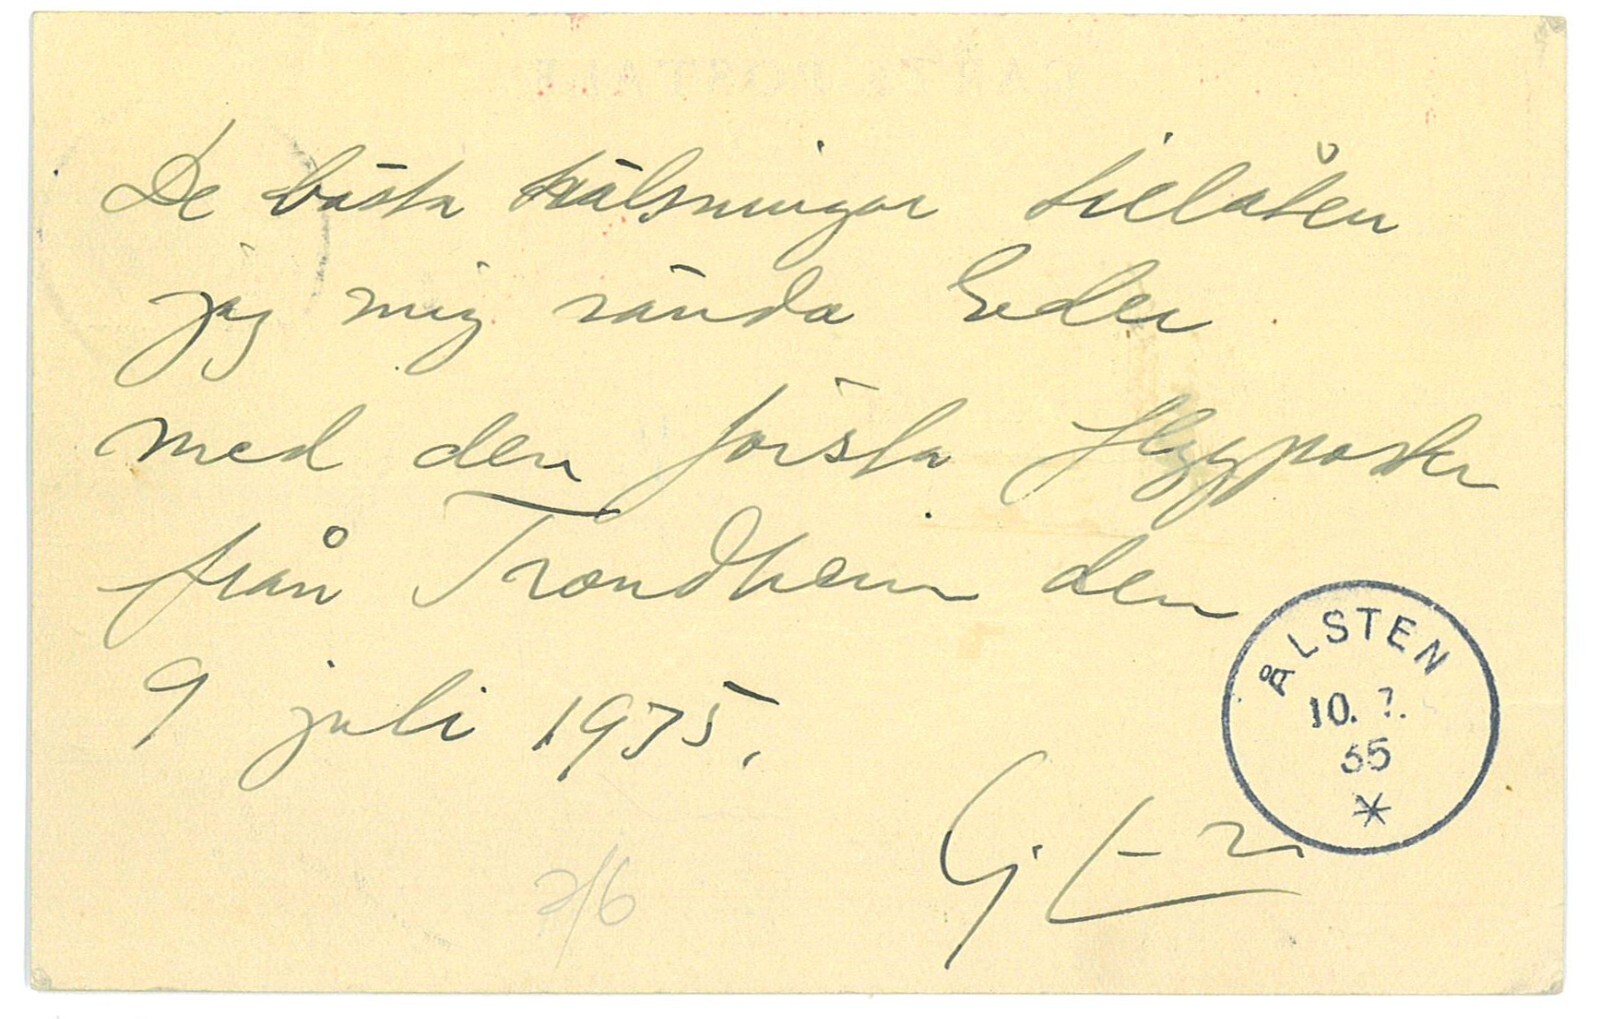 De bästa hälsningar tillåten
jag mig sända Eder
med den första flygposten
från Trondheim den
9 juli 1935.
ÅLSTEN
10. 7.
35